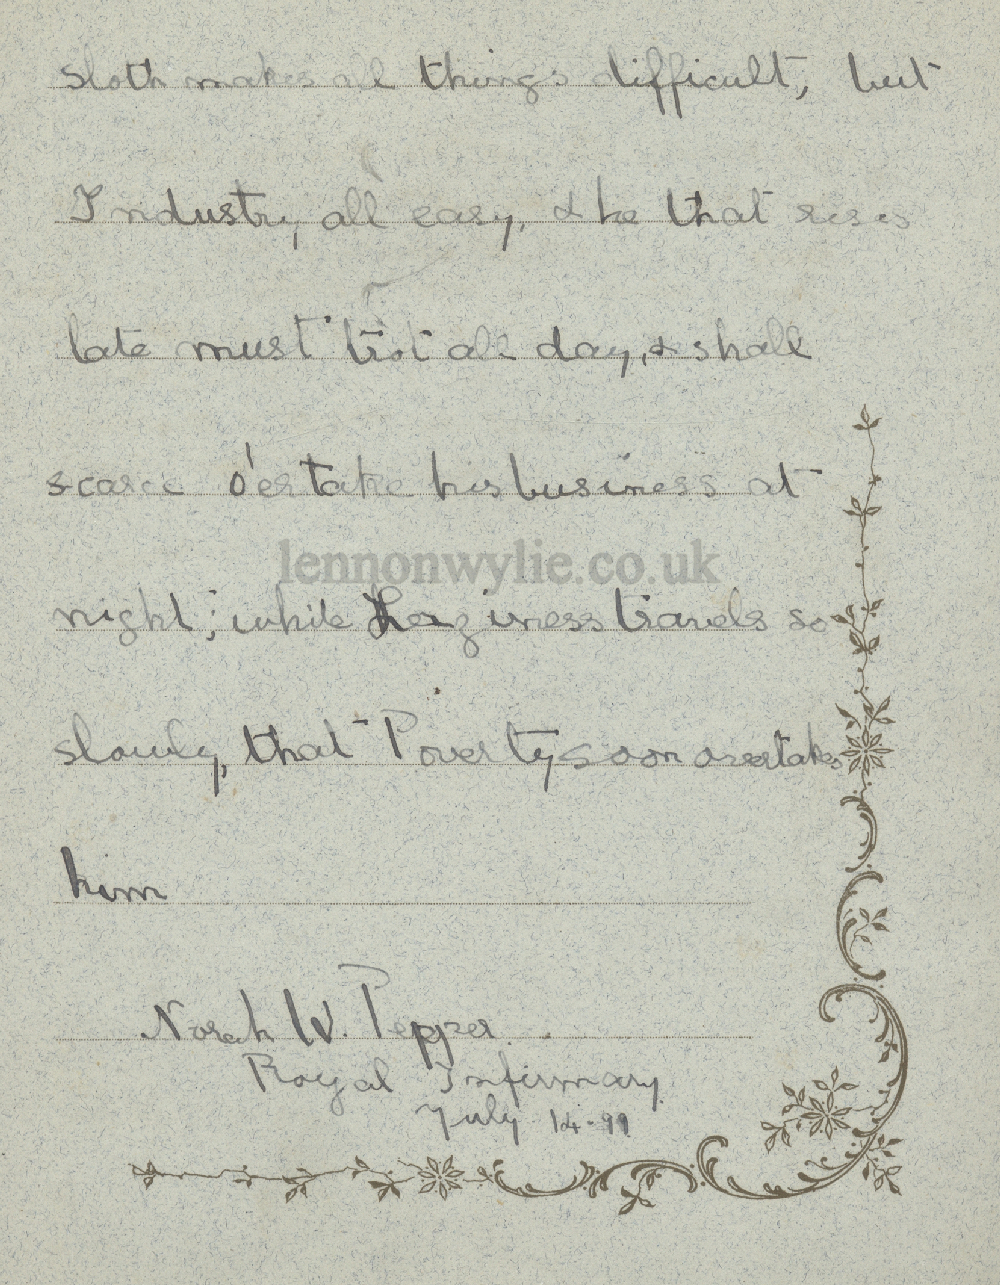 sloth makes all things difficult, but
Industry, all easy, & he that rises
late must trot all day, & shall
scarce o'ertake his business at
lennonwylie.co.uk
night; while laziness travels so
slowly, that Poverty soon overtakes
him
Norah W. Pepper.
Royal Infirmary
July 14.99